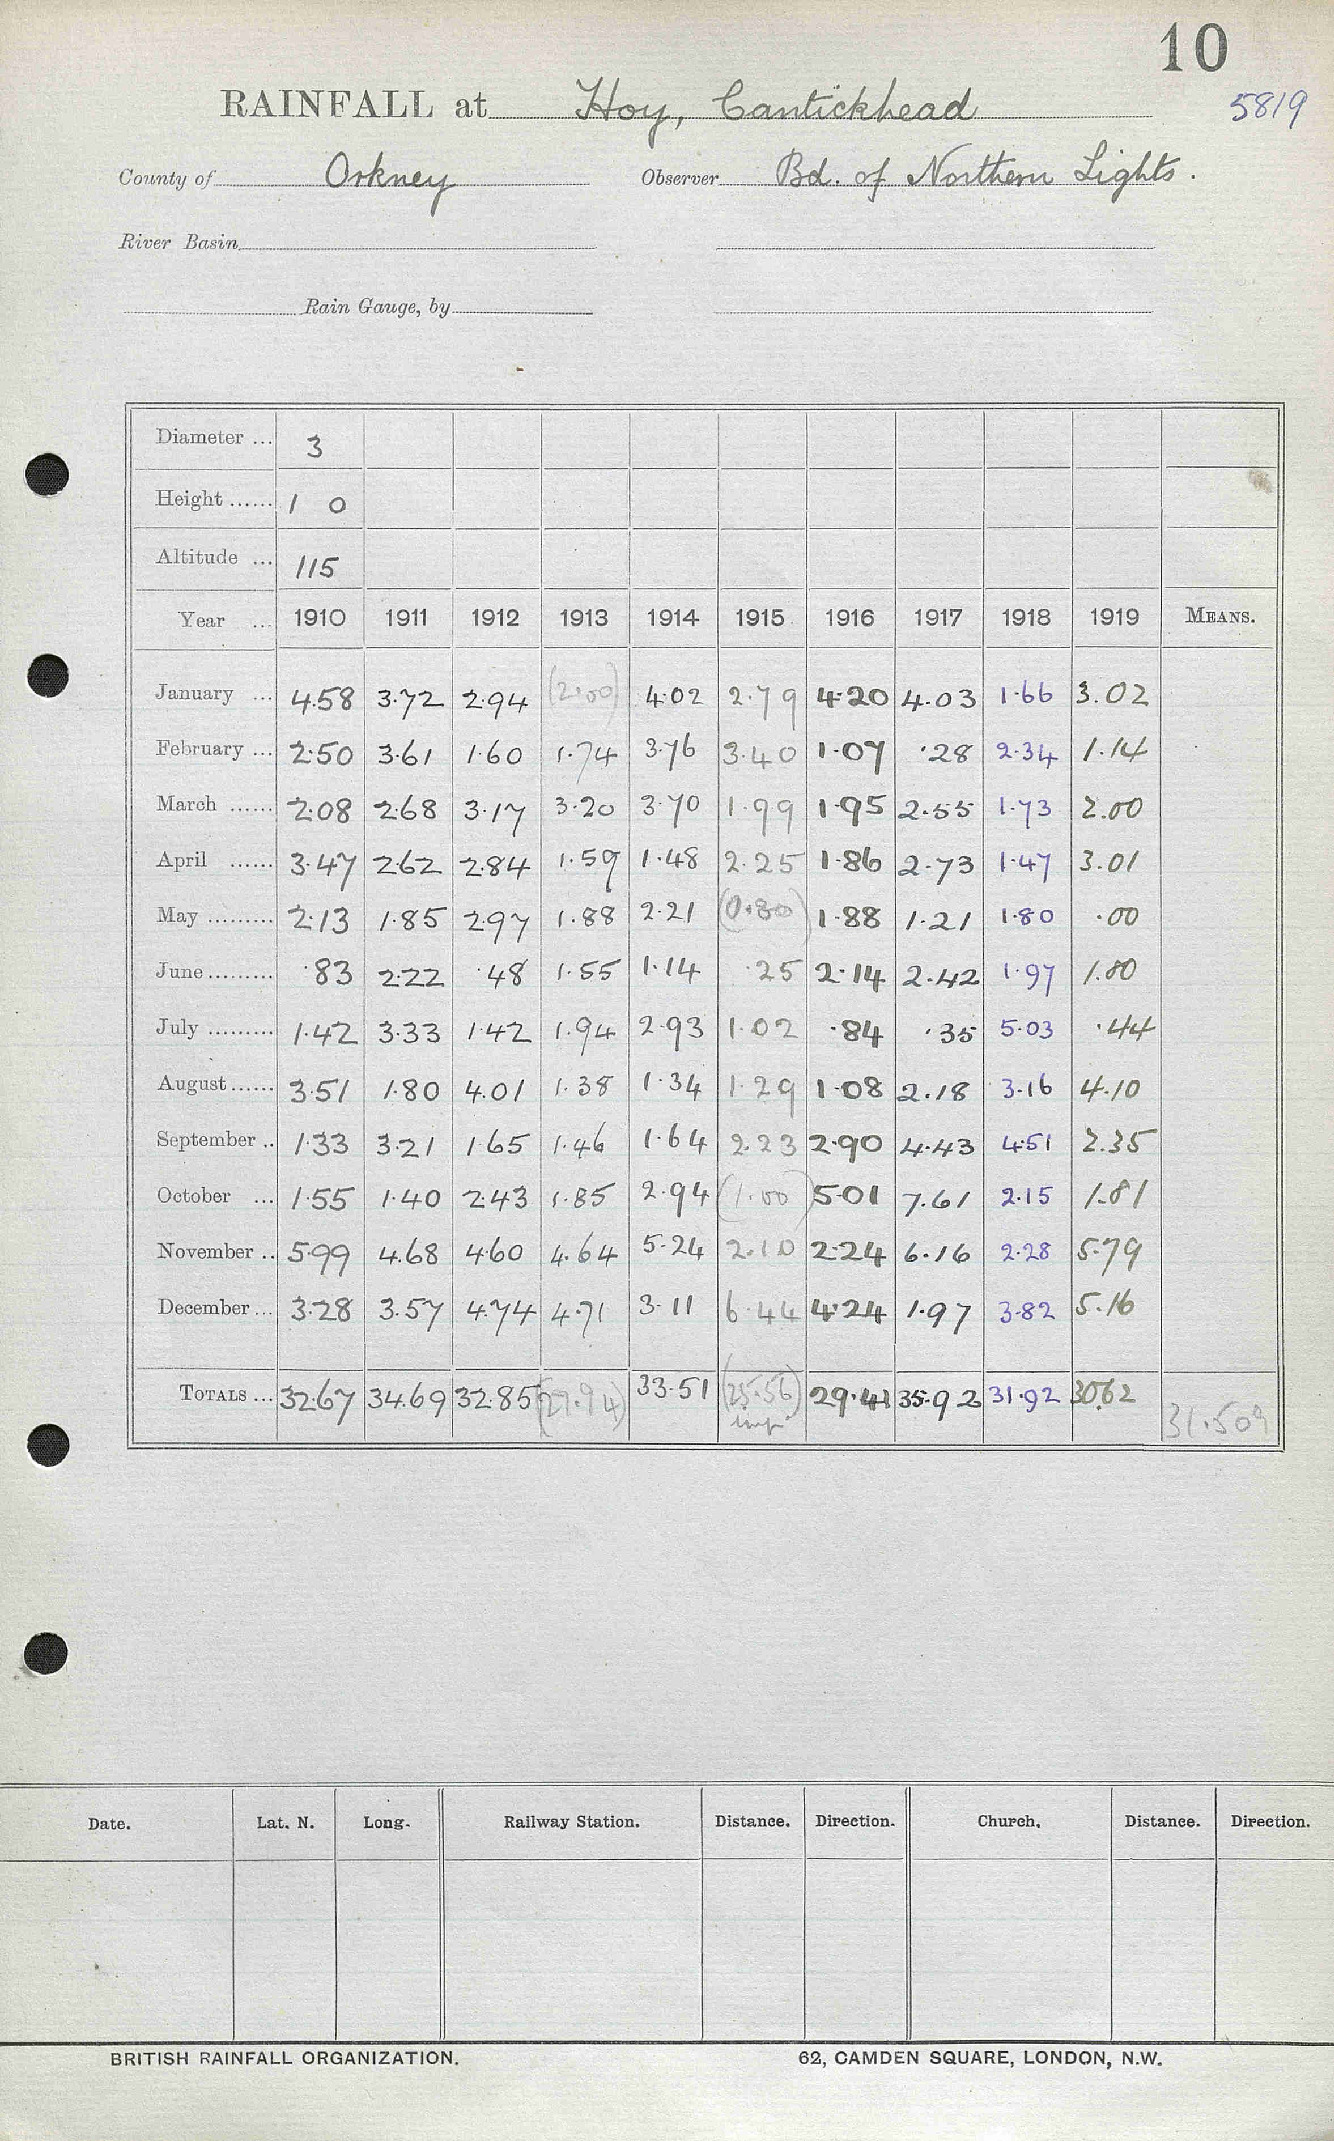 10
RAINFALL at Hoy, Cantickhead 5819
County of Orkney Observer Bd. of Northern Lights.
River Basin
Rain Gauge, by
Diameter ... 3
Height ...... 1 0
Altitude ... 115
Year ... 1910 1911 1912 1913 1914 1915 1916 1917 1918 1919 MEANS.
January ... 4.58 3.72 2.94 (2.00) 4.02 2.79 4.20 4.03 1.66 3.02
February ... 2.50 3.61 1.60 1.74 3.76 3.40 1.07 .28 2.34 1.14
March ...... 2.08 2.68 3.17 3.20 3.70 1.99 1.95 2.55 1.73 2.00
April ...... 3.47 2.62 2.84 1.59 1.48 2.25 1.86 2.73 1.47 3.01
May ......... 2.13 1.85 2.97 1.88 2.21 (0.80) 1.88 1.21 1.80 .00
June ......... .83 2.22 .48 1.55 1.14 .25 2.14 2.42 1.97 1.80
July ......... 1.42 3.33 1.42 1.94 2.93 1.02 .84 .35 5.03 .44
August ...... 3.51 1.80 4.01 1.38 1.34 1.29 1.08 2.18 3.16 4.10
September .. 1.33 3.21 1.65 1.46 1.64 2.23 2.90 4.43 4.51 2.35
October ... 1.55 1.40 2.43 1.85 2.94 (1.00) 5.01 7.61 2.15 1.81
November .. 5.99 4.68 4.60 4.64 5.24 2.10 2.24 6.16 2.28 5.79
December ... 3.28 3.57 4.74 4.71 3.11 6.44 4.24 1.97 3.82 5.16
TOTALS ... 32.67 34.69 32.85 (27.94) 33.51 (25.56) 29.41 35.92 31.92 30.62 31.509
Date. Lat. N. Long. Railway Station. Distance. Direction. Church. Distance. Direction.
BRITISH RAINFALL ORGANIZATION. 62, CAMDEN SQUARE, LONDON, N.W.